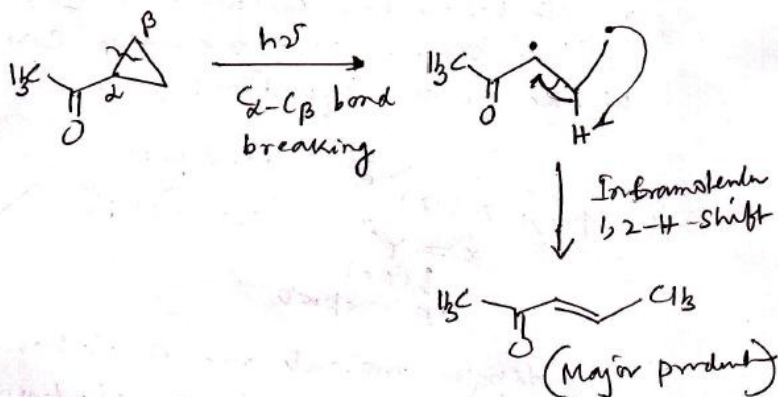 β
H₃C
α
O
hν
Cα-Cβ bond
breaking
H₃C
O
H
Intramolecular
1,2-H-Shift
H₃C
CH₃
O
(Major product)